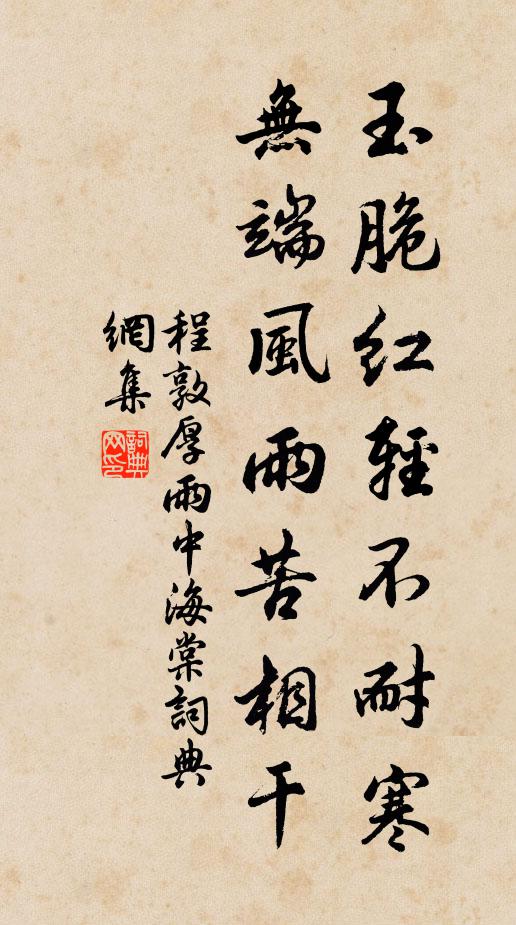 玉脆紅輕不耐寒
無端風雨苦相干
程敦厚雨中海棠詞典
網集
詞典
网印